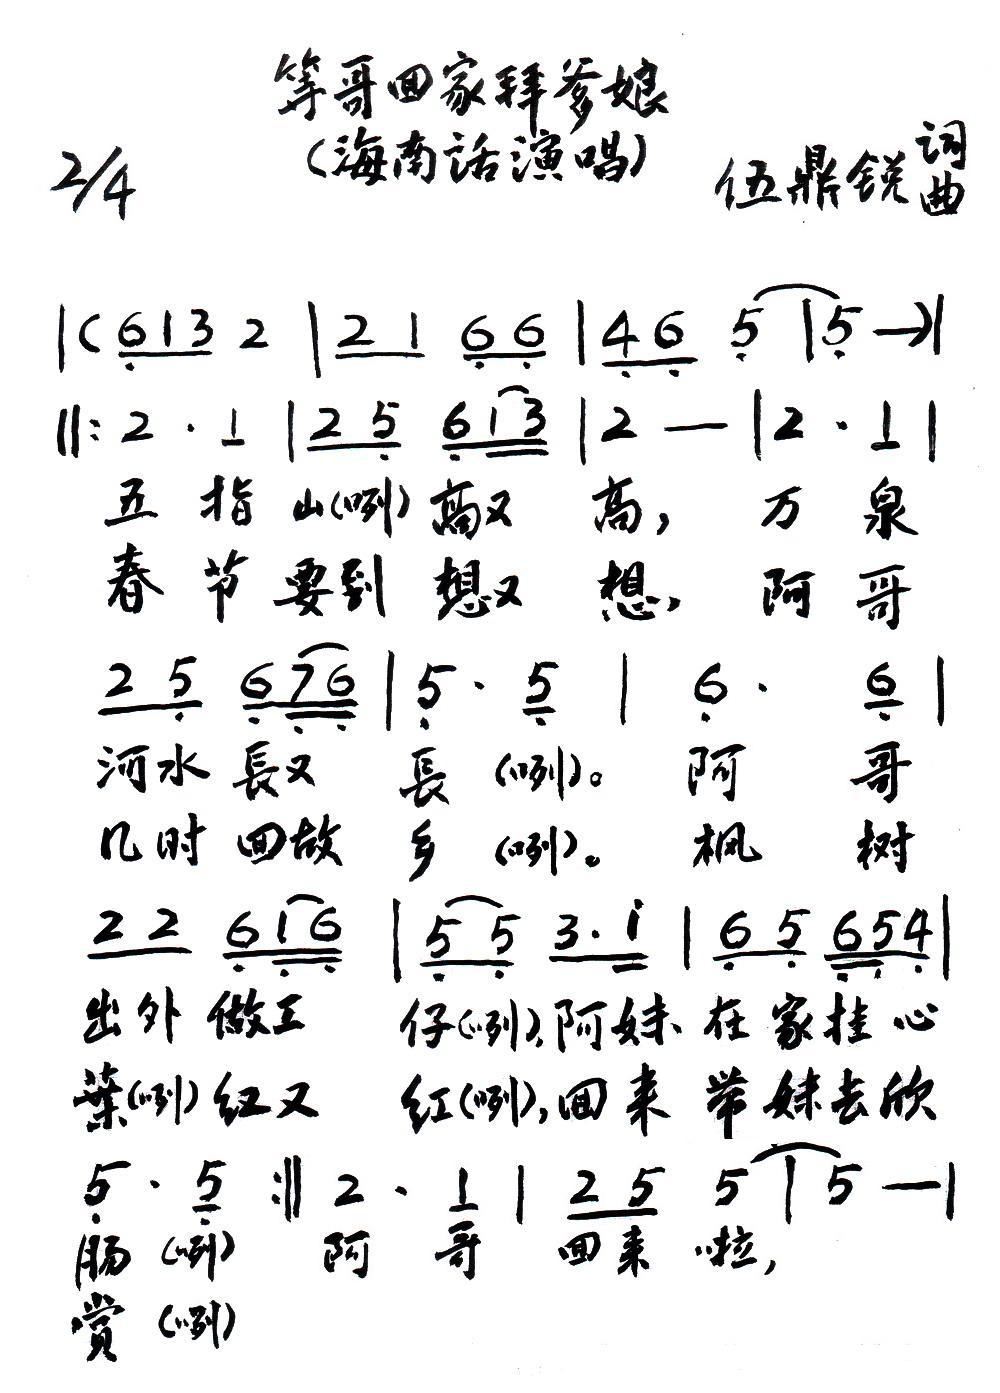 等哥回家拜爹娘
(海南话演唱)
2/4
伍鼎锐 词曲
|( 6 1 3 2 | 2 1 6 6 | 4 6 5 | 5 —)|
‖: 2 · 1 | 2 5 6 1 3 | 2 — | 2 · 1 |
五 指 山(咧) 高又 高, 万 泉
春 节 要到 想又 想, 阿 哥
2 5 6 7 6 | 5 · 5 | 6 · 6 |
河水 長又 長 (咧)。 阿 哥
几时 回故 乡 (咧)。 枫 树
2 2 6 1 6 | 5 5 3 · i | 6 5 6 5 4 |
出外 做工 仔(咧),阿妹 在家挂心
葉(咧)红又 红(咧),回来 带妹去欣
5 · 5 :‖ 2 · 1 | 2 5 5 | 5 — |
肠 (咧) 阿 哥 回来 啦,
赏 (咧)